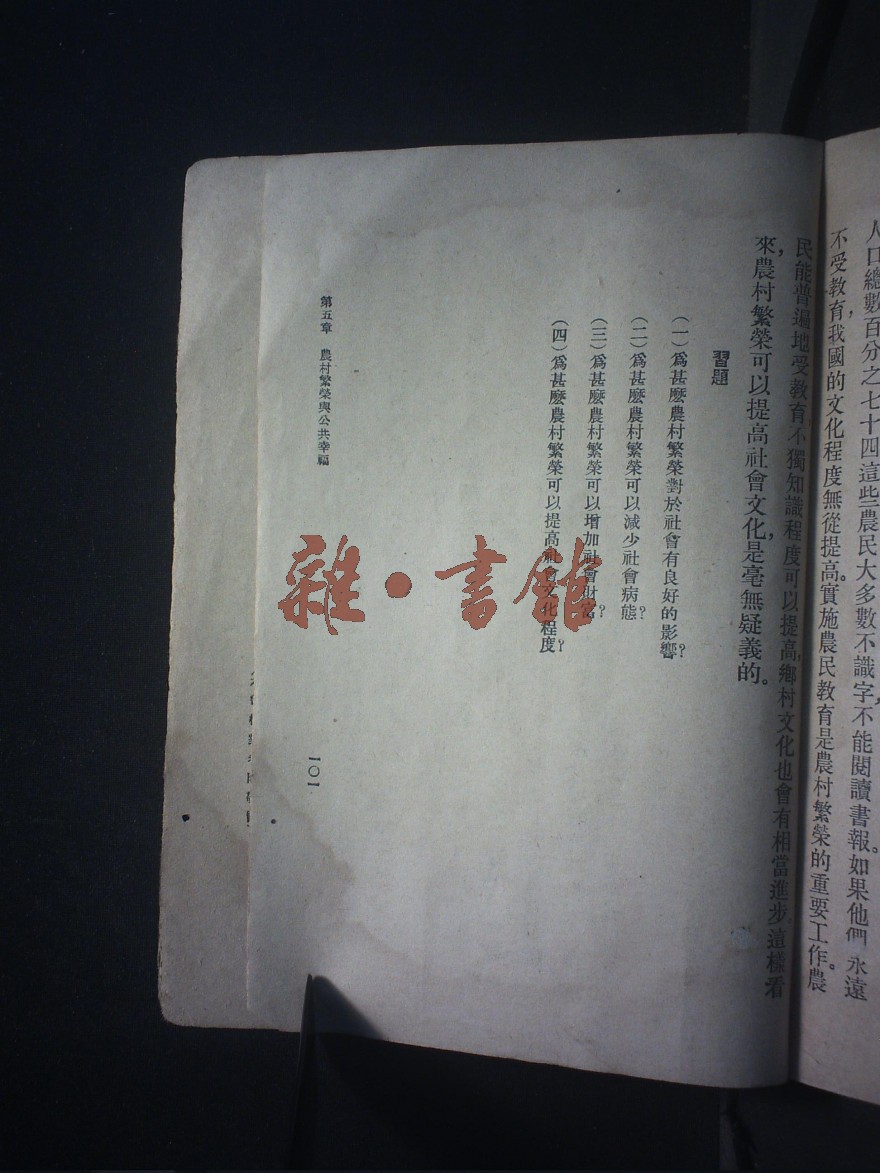 人口總數百分之七十四這些農民大多數不識字，不能閱讀書報。如果他們永遠
不受教育，我國的文化程度無從提高。實施農民教育是農村繁榮的重要工作。農
民能普遍地受教育不獨知識程度可以提高，鄉村文化也會有相當進步，這樣看
來，農村繁榮可以提高社會文化，是毫無疑義的。
習題
（一）爲甚麽農村繁榮對於社會有良好的影響？
（二）爲甚麽農村繁榮可以減少社會病態？
（三）爲甚麽農村繁榮可以增加社會財富？
（四）爲甚麽農村繁榮可以提高社會文化程度？
第五章　農村繁榮與公共幸福
一〇一
雜·書館